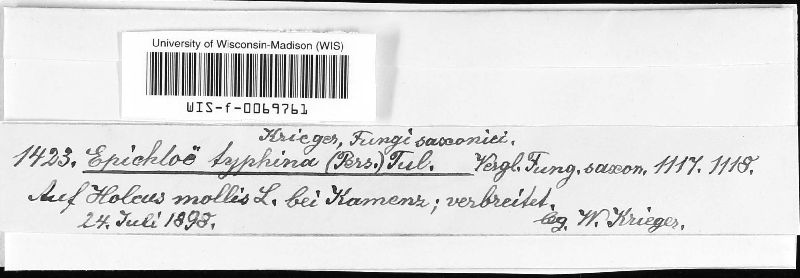 University of Wisconsin-Madison (WIS)
WIS-f-0069761
Krieger, Fungi saxonici.
1423. Epichloë typhina (Pers.) Tul. Vergl. Fung. saxon. 1117. 1118.
Auf Holcus mollis L. bei Kamenz; verbreitet.
24. Juli 1898. lg. W. Krieger.